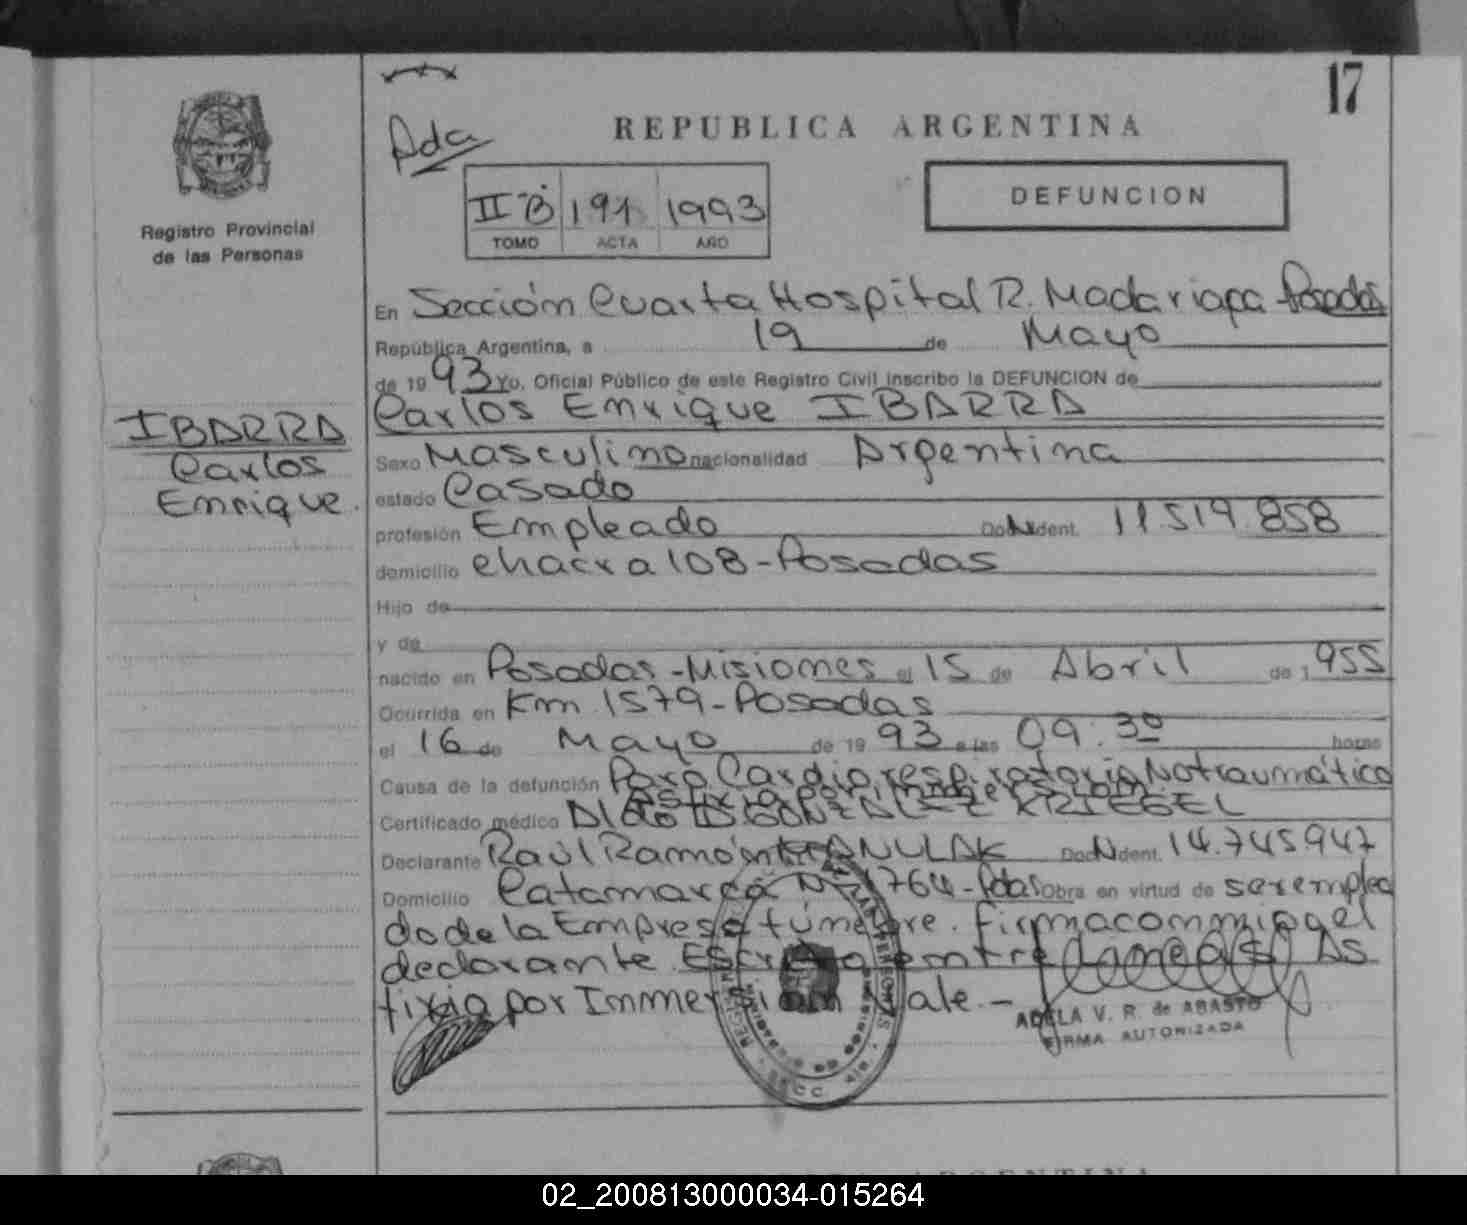 17
Pda
REPUBLICA ARGENTINA
II B 191 1993
TOMO ACTA AÑO
DEFUNCION
Registro Provincial
de las Personas
IBARRA
Carlos
Enrique.
En Sección Cuarta Hospital R. Madariaga Posadas
República Argentina, a 19 de Mayo
de 1993 Yo, Oficial Público de este Registro Civil inscribo la DEFUNCION de
Carlos Enrique IBARRA
Sexo Masculino nacionalidad Argentina
estado Casado
profesión Empleado Doc. Ident. 11.519.858
domicilio chacra 108 - Posadas
Hijo de
y de
nacido en Posadas - Misiones el 15 de Abril de 1955
Ocurrida en Km 1579 - Posadas
el 16 de Mayo de 1993 a las 09:30 horas
Causa de la defunción Paro Cardio respiratorio No traumático
Asfixia por inmersión
Certificado médico GONZALEZ KRIEGEL
Declarante Raúl Ramón HANULAK Doc. Ident. 14.745947
Domicilio Catamarca Nº 1764 - Pdas Obra en virtud de ser emplea
do de la Empresa fúnebre. Firma conmigo el
declarante. Escrito entre lineas: As
fixia por Inmersión Vale. -
ADELA V. R. de ABASTO
FIRMA AUTORIZADA
02_200813000034-015264